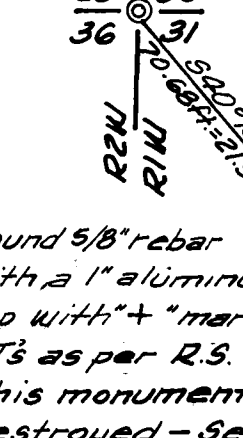 36 31
S40°
70.68ft.=21.
R2W
R1W
ound 5/8" rebar
ith a 1" alumin
p with "+ "mar
T's as per R.S.
his monument
estroyed - Se